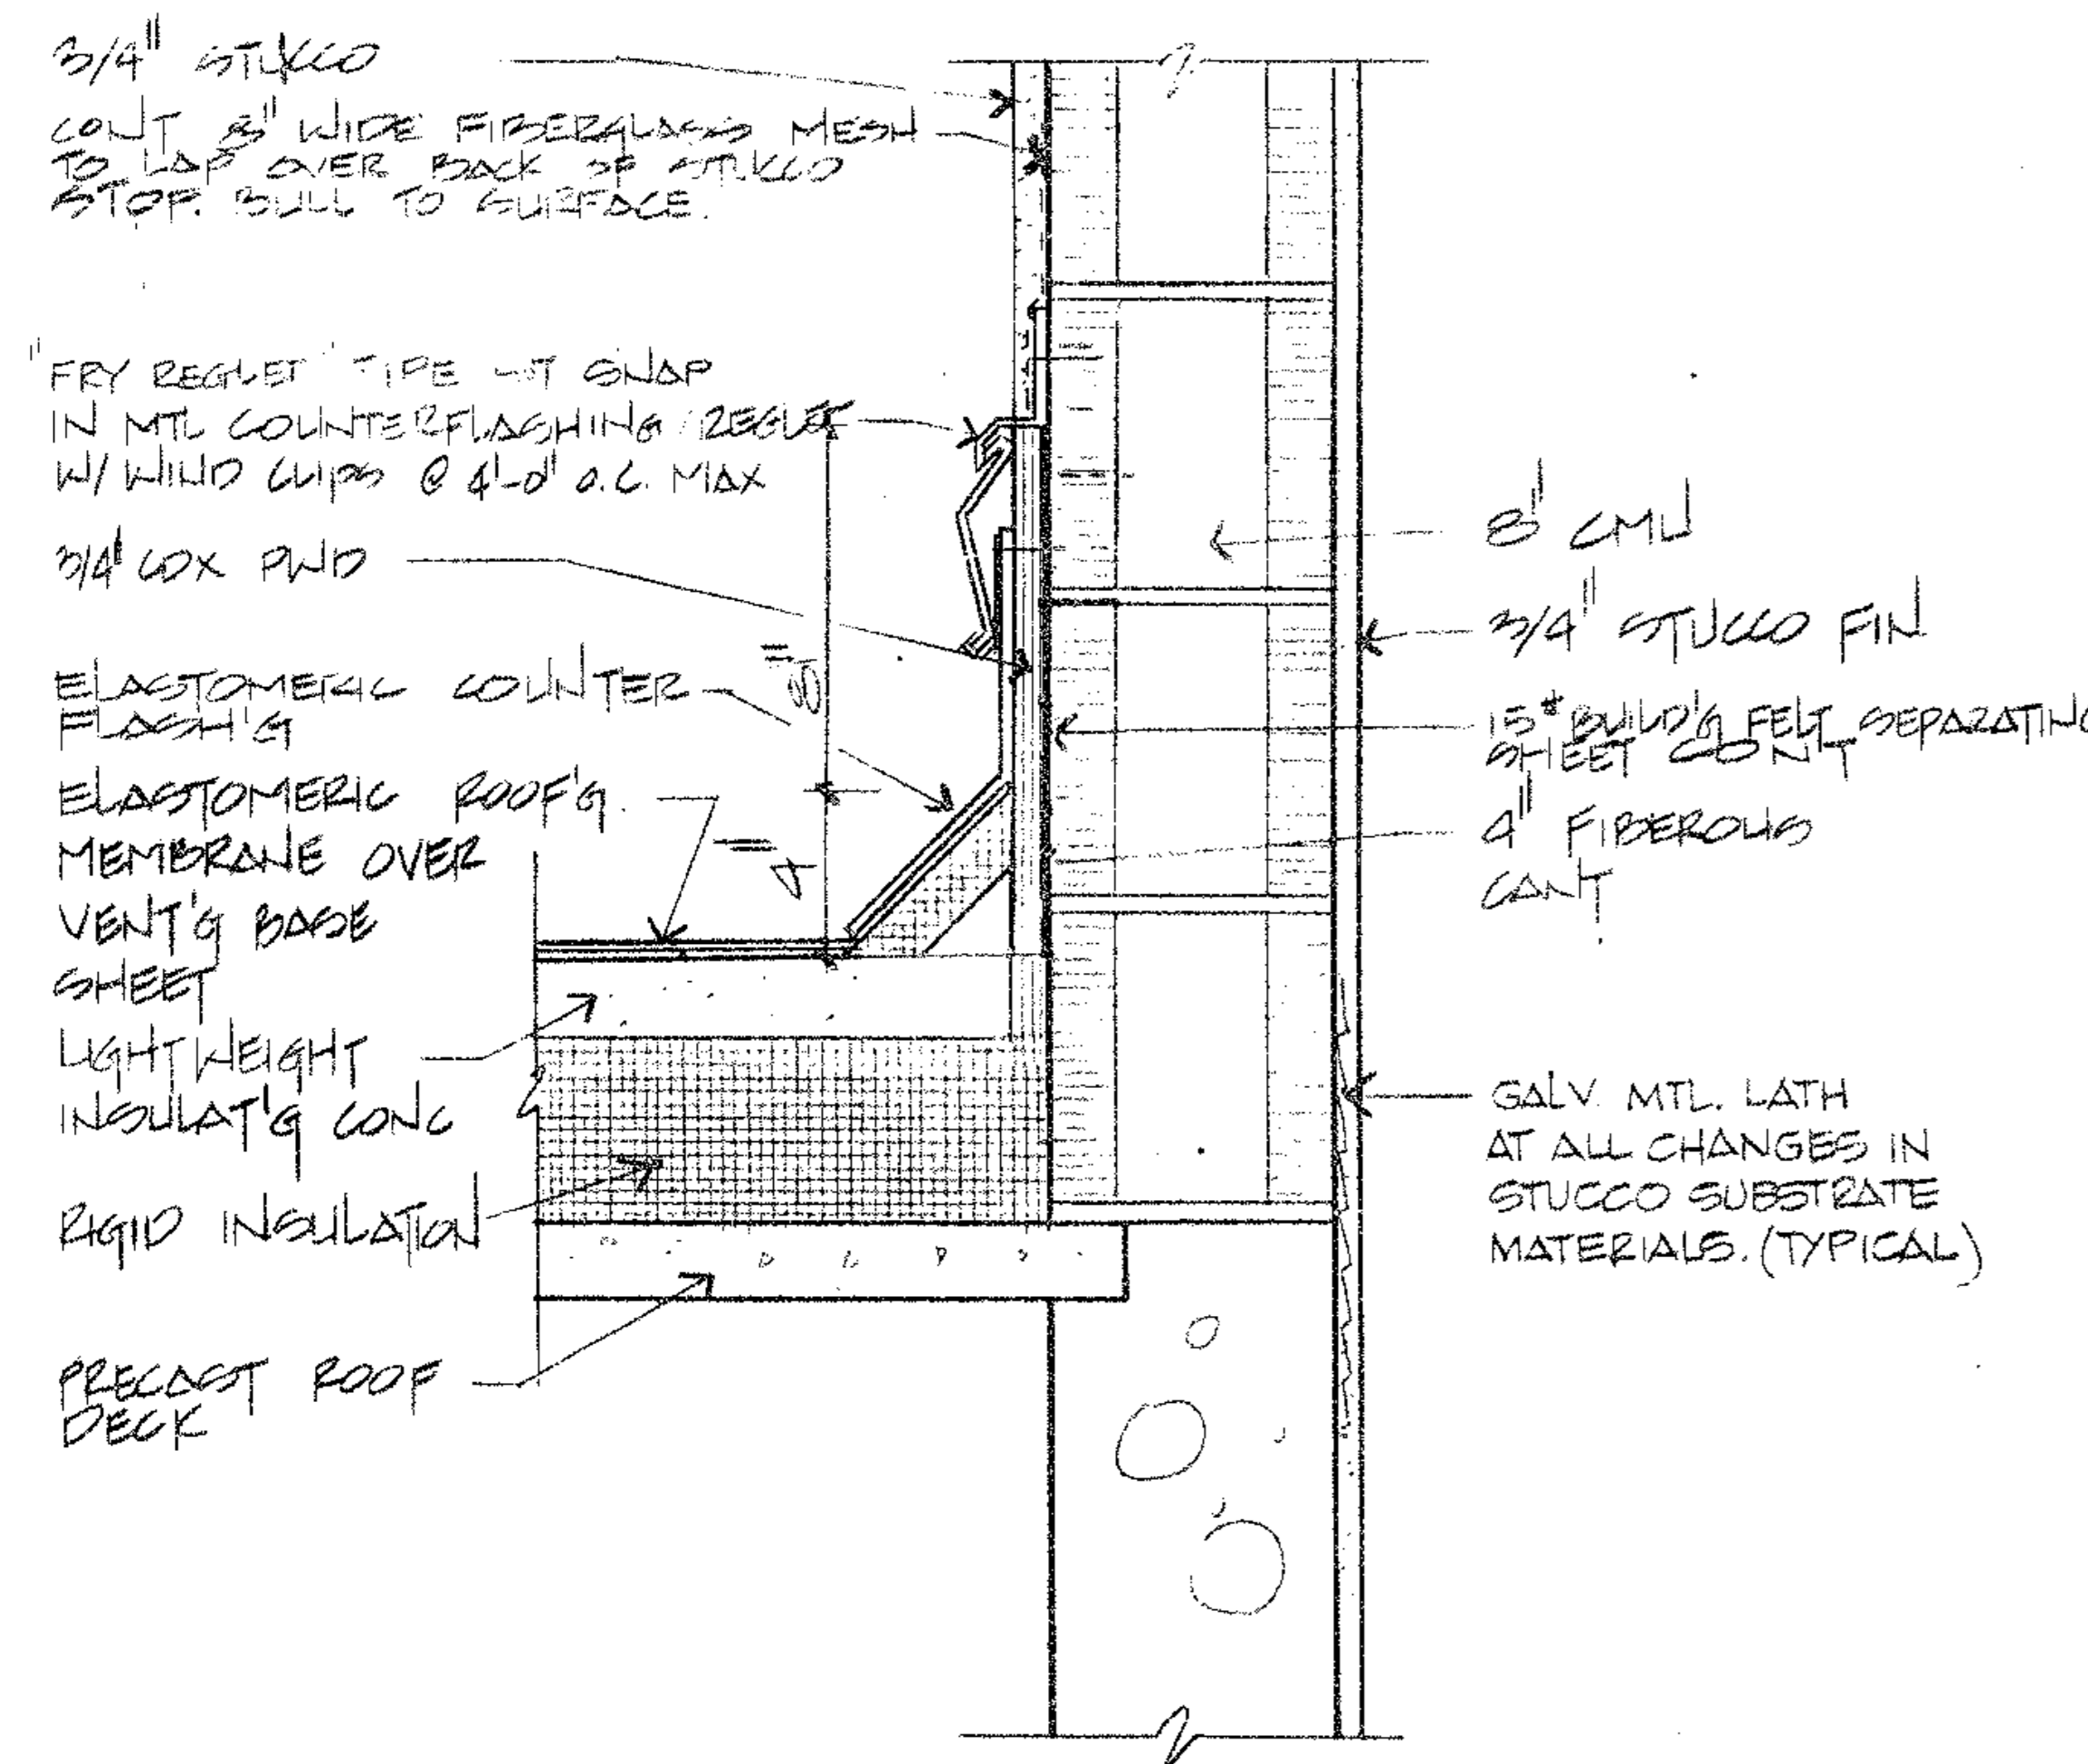 3/4" STUCCO
CONT 8" WIDE FIBERGLASS MESH
TO LAP OVER BACK OF STUCCO
STOP. BULL TO SURFACE.
"FRY REGLET" TYPE SNAP
IN MTL COUNTERFLASHING/REGLET
W/ WIND CLIPS @ 4'-0" O.C. MAX
3/4" CDX PWD
ELASTOMERIC COUNTER
FLASH'G
ELASTOMERIC ROOF'G.
MEMBRANE OVER
VENT'G BASE
SHEET
LIGHTWEIGHT
INSULAT'G CONC
RIGID INSULATION
PRECAST ROOF
DECK
8"
4"
8" CMU
3/4" STUCCO FIN
15# BUILD'G FELT SEPARATING
SHEET CONT
4" FIBEROUS
CANT
GALV. MTL. LATH
AT ALL CHANGES IN
STUCCO SUBSTRATE
MATERIALS. (TYPICAL)